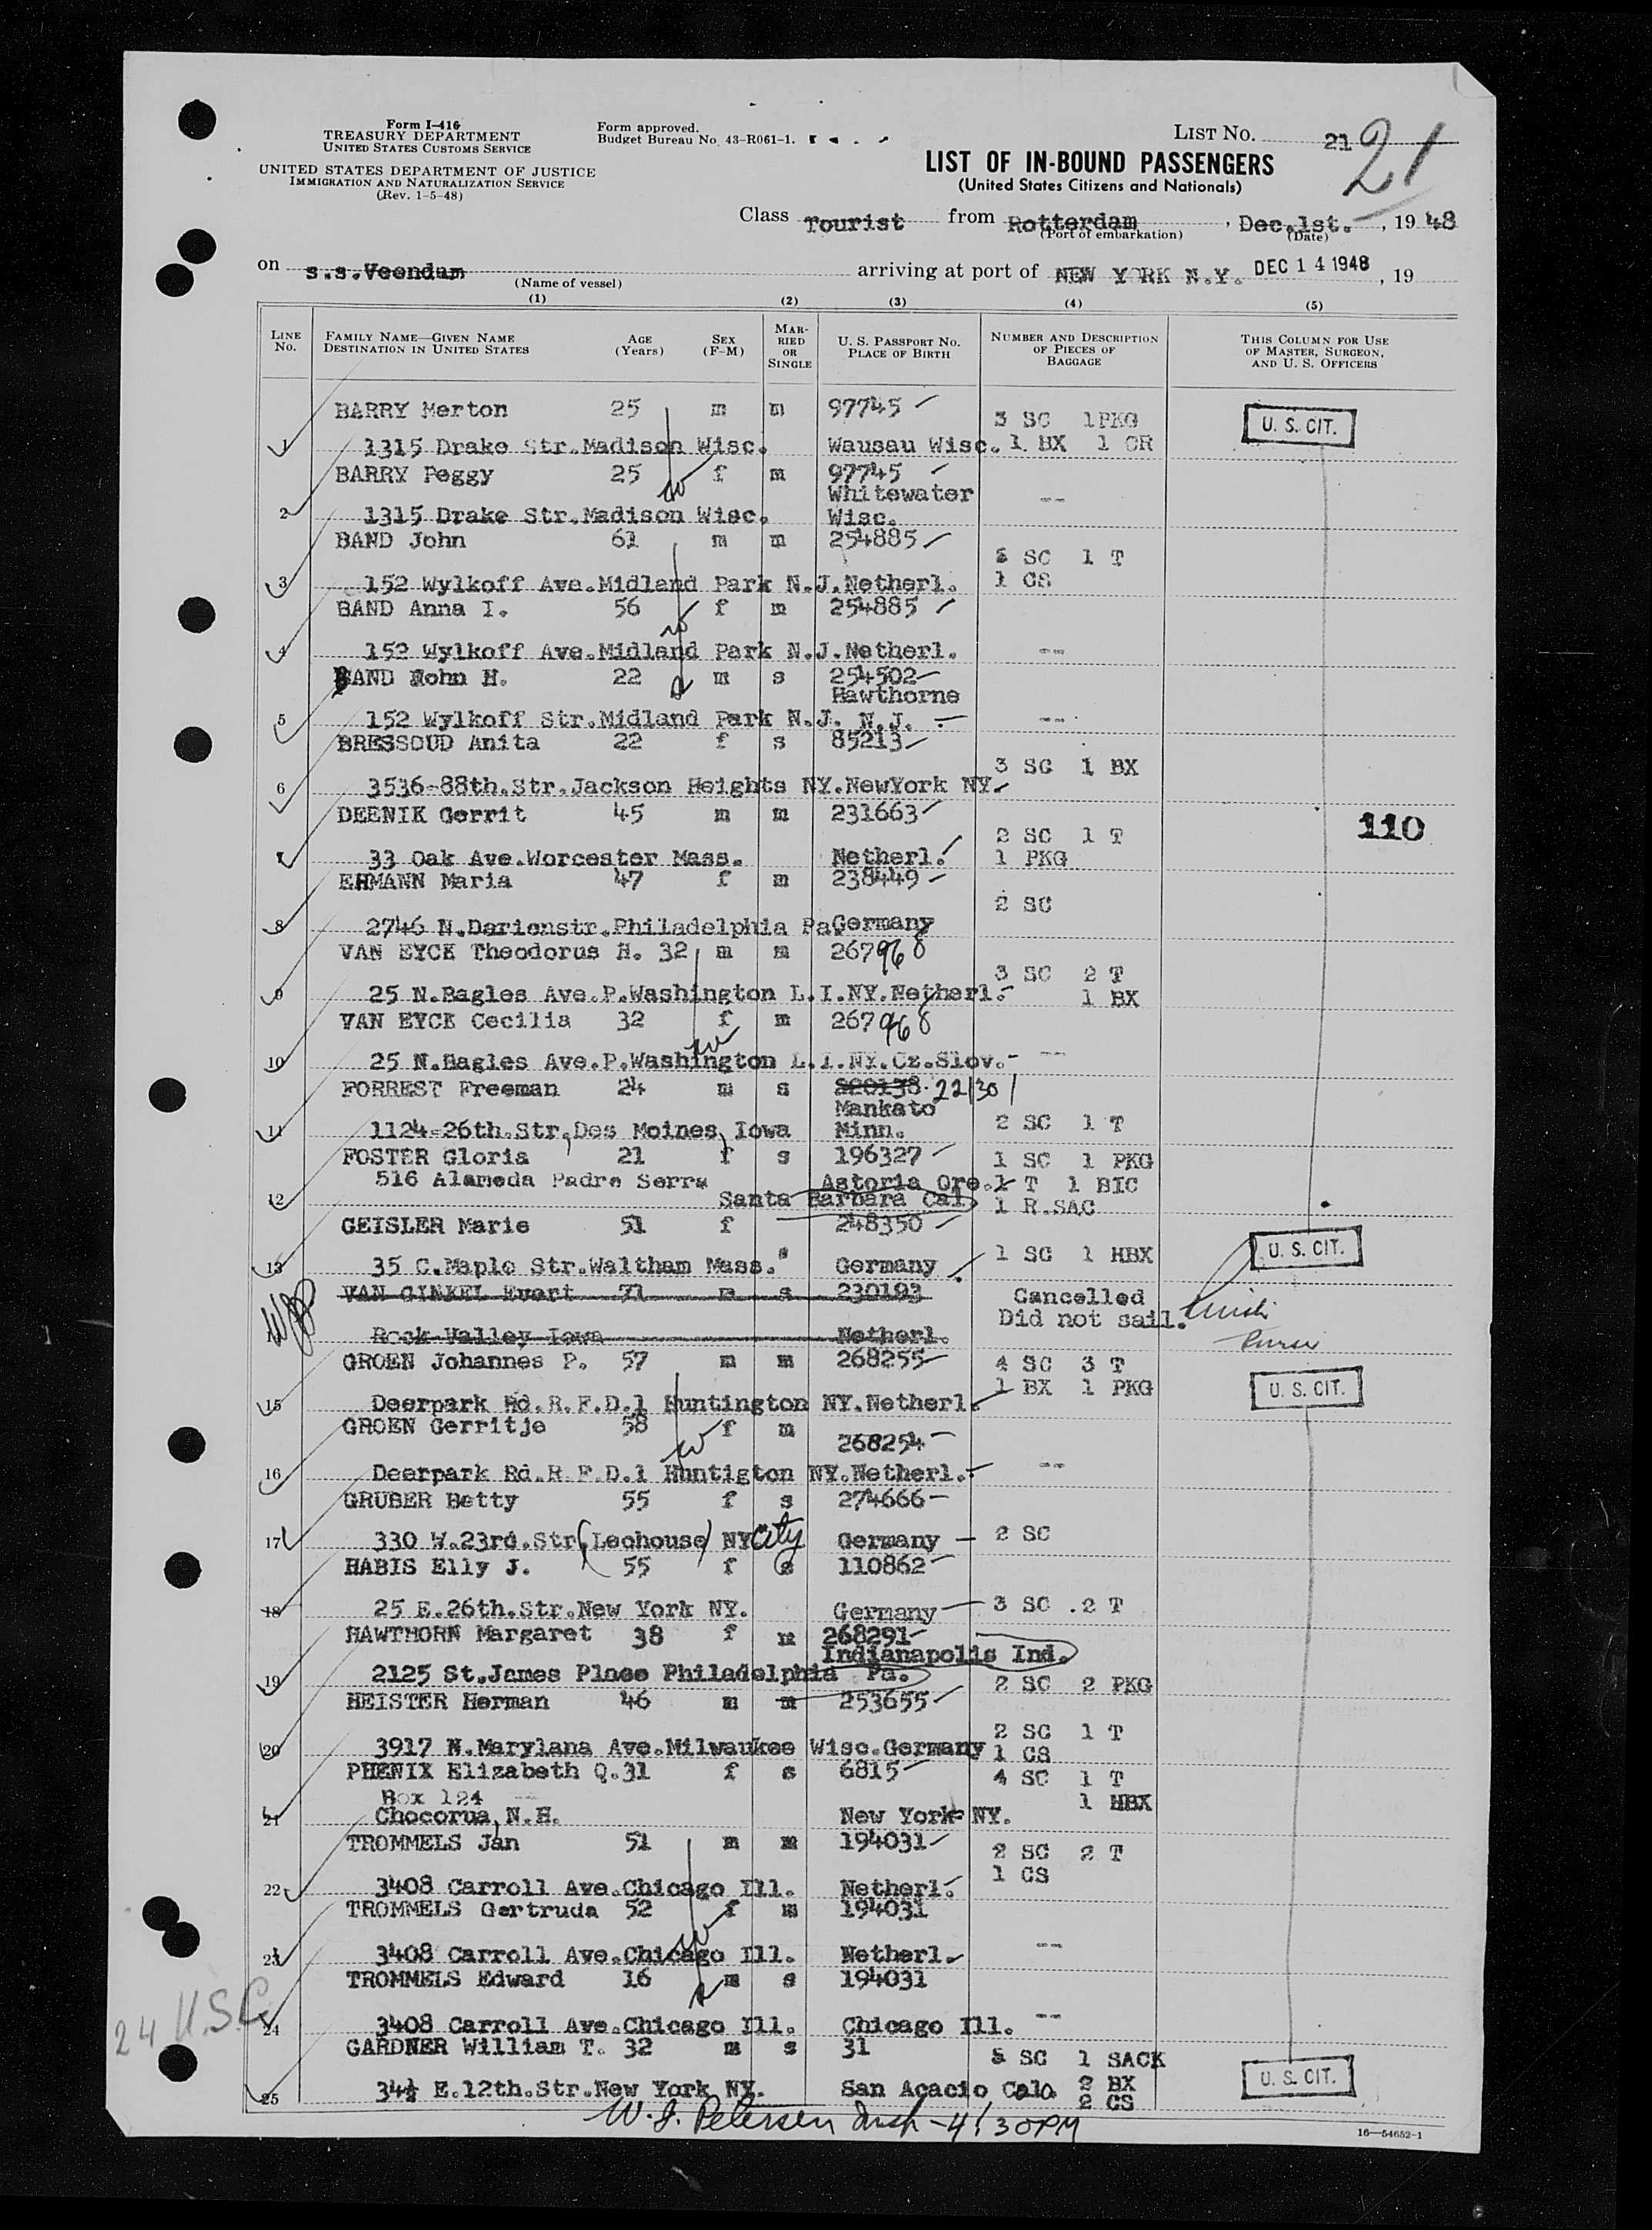 Form I-416
TREASURY DEPARTMENT
UNITED STATES CUSTOMS SERVICE
UNITED STATES DEPARTMENT OF JUSTICE
IMMIGRATION AND NATURALIZATION SERVICE
(Rev. 1-5-48)
Form approved.
Budget Bureau No. 43-R061-1.
LIST NO. 21
21
LIST OF IN-BOUND PASSENGERS
(United States Citizens and Nationals)
Class Tourist from Rotterdam, Dec.1st., 19 48
(Port of embarkation) (Date)
on s.s.Veendam arriving at port of NEW YORK N.Y. DEC 14 1948, 19
(Name of vessel)
(1) (2) (3) (4) (5)
LINE No.
FAMILY NAME—GIVEN NAME
DESTINATION IN UNITED STATES
AGE (Years)
SEX (F-M)
MARRIED OR SINGLE
U. S. PASSPORT NO.
PLACE OF BIRTH
NUMBER AND DESCRIPTION OF PIECES OF BAGGAGE
THIS COLUMN FOR USE OF MASTER, SURGEON, AND U. S. OFFICERS
BARRY Merton 25 m m 97745 3 SC 1PKG U. S. CIT.
1 1315 Drake Str.Madison Wisc. Wausau Wisc. 1 BX 1 CR
BARRY Peggy 25 f m 97745
Whitewater --
2 1315 Drake Str.Madison Wisc. Wisc.
BAND John 61 m m 254885
SC 1 T
3 152 Wylkoff Ave.Midland Park N.J.Netherl. 1 CS
BAND Anna I. 56 f m 254885
4 152 Wylkoff Ave.Midland Park N.J.Netherl. --
BAND John H. 22 m s 254502
Hawthorne
5 152 Wylkoff Str.Midland Park N.J. N.J. --
BRESSOUD Anita 22 f s 85213
3 SC 1 BX
6 3536-88th.Str.Jackson Heights NY.NewYork NY.
DEENIK Gerrit 45 m m 231663 110
2 SC 1 T
7 33 Oak Ave.Worcester Mass. Netherl. 1 PKG
EHMANN Maria 47 f m 238449
2 SC
8 2746 N.Darienstr.Philadelphia Pa.Germany
VAN EYCK Theodorus H. 32 m m 267968
3 SC 2 T
9 25 N.Bagles Ave.P.Washington L.I.NY.Netherl. 1 BX
VAN EYCK Cecilia 32 f m 267968
10 25 N.Bagles Ave.P.Washington L.I.NY.Cz.Slov. --
FORREST Freeman 24 m s 221301
Mankato
11 1124-26th.Str,Des Moines, Iowa Minn. 2 SC 1 T
FOSTER Gloria 21 f s 196327 1 SC 1 PKG
516 Alameda Padre Serra Astoria Ore. 1 T 1 BIC
12 Santa Barbara Cal. 1 R.SAC
GEISLER Marie 51 f 248350
13 35 C.Maple Str.Waltham Mass. s Germany 1 SC 1 HBX U. S. CIT.
VAN GINKEL Evert 71 m s 230193 Cancelled
Did not sail.
14 Rock Valley Iowa Netherl.
GROEN Johannes P. 57 m m 268255 4 SC 3 T
1 BX 1 PKG U. S. CIT.
15 Deerpark Rd.R.F.D.1 Huntington NY.Netherl.
GROEN Gerritje 58 f m
268254
16 Deerpark Rd.R.F.D.1 Huntigton NY.Netherl. --
GRUBER Betty 55 f s 274666
17 330 W.23rd.Str(Leohouse) NY City Germany 2 SC
HABIS Elly J. 55 f s 110862
18 25 E.26th.Str.New York NY. Germany 3 SC .2 T
HAWTHORN Margaret 38 f m 268291
Indianapolis Ind.
19 2125 St.James Place Philadelphia Pa. 2 SC 2 PKG
HEISTER Herman 46 m m 253655
2 SC 1 T
20 3917 N.Marylana Ave.Milwaukee Wisc.Germany 1 CS
PHENIX Elizabeth Q.31 f s 6815 4 SC 1 T
Box 124 1 HBX
21 Chocorua, N.H. New York NY.
TROMMELS Jan 51 m m 194031
2 SC 2 T
22 3408 Carroll Ave.Chicago Ill. Netherl. 1 CS
TROMMELS Gertruda 52 f m 194031
23 3408 Carroll Ave.Chicago Ill. Netherl. --
TROMMELS Edward 16 m s 194031
24 U.S.C
24 3408 Carroll Ave.Chicago Ill. Chicago Ill. --
GARDNER William T. 32 m s 31 SC 1 SACK
25 34½ E.12th.Str.New York NY. San Acacio Colo. 2 BX U. S. CIT.
2 CS
W. J. Petersen Insp-4:30PM
16—54652-1